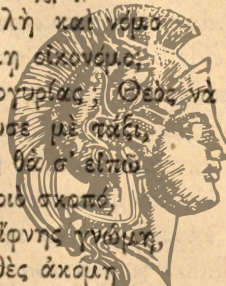 λὴ καὶ νόμο
μη οἰκονόμο;
ργυρίας, Θεὸς νὰ
υσε μὲ τάξι,
θὰ σ' εἰπῶ
ριὸ σκρπό,
ίφνης γνώμη,
θὲς ἀκόμη